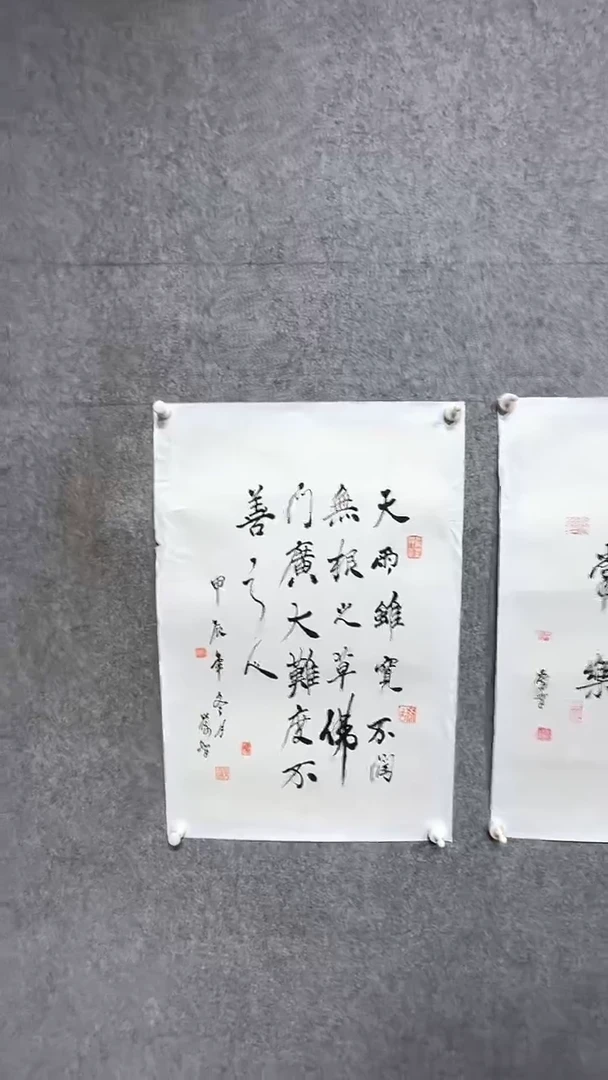 天雨雖寬不潤
無根之草佛
門廣大難度不
善之人
甲辰年冬月
樂